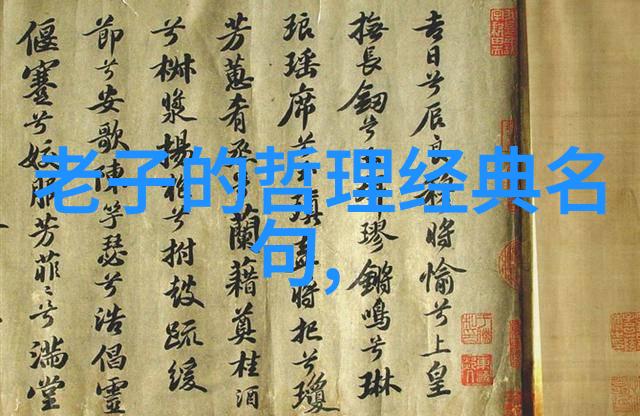 老子的哲理经典名
句,
吉日兮辰良穆將愉兮上皇
撫長劒兮璆鏘鳴兮琳
琅瑶席兮瑱盍將把兮瓊
芳蕙肴烝兮蘭藉奠桂酒
兮椒漿揚枹兮拊鼓疏緩
節兮安歌陳竽瑟兮浩倡靈
偃蹇兮姣服芳菲〻兮滿堂